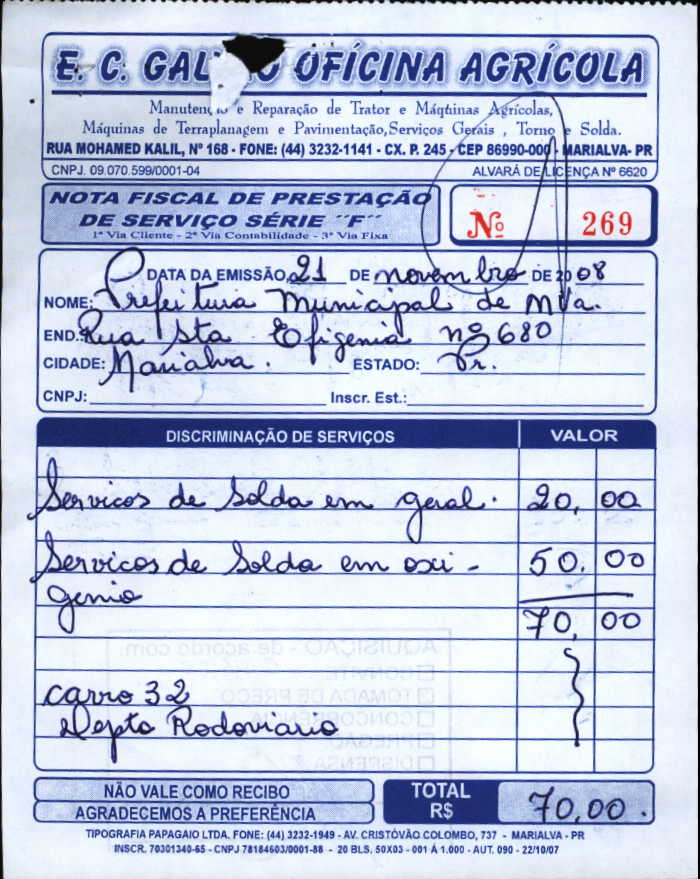 E. C. OFÍCINA AGRÍCOLA
Manutenção e Reparação de Trator e Máqtinas Agrícolas,
Máquinas de Terraplanagem e Pavimentação,Serviços Gerais , Torno e Solda.
RUA MOHAMED KALIL, Nº 168 - FONE: (44) 3232-1141 - CX. P. 245 - CEP 86990-000 - MARIALVA- PR
CNPJ. 09.070.599/0001-04 ALVARÁ DE LICENÇA Nº 6620
NOTA FISCAL DE PRESTAÇÃO
DE SERVIÇO SÉRIE ´´F´´
1ª Via Cliente - 2ª Via Contabilidade - 3ª Via Fixa
Nº 269
DATA DA EMISSÃO 21 DE novembro DE 2008
NOME: Prefeitura Municipal de Mva.
END. Rua Sta Efigenia nº 680
CIDADE: Marialva. ESTADO: Pr.
CNPJ: Inscr. Est.:
DISCRIMINAÇÃO DE SERVIÇOS VALOR
Servicos de Solda em geral. 20, 00
Servicos de Solda em oxi- 50, 00
genio 70, 00
AQUISIÇÃO - de acordo com:
CONVITE
TOMADA DE PREÇO
carro 32
CONCORRÊNCIA
Depto Rodoviario
PREGÃO
DISPENSA
NÃO VALE COMO RECIBO
AGRADECEMOS A PREFERÊNCIA
TOTAL
R$ 70,00.
TIPOGRAFIA PAPAGAIO LTDA. FONE: (44) 3232-1949 - AV. CRISTÓVÃO COLOMBO, 737 - MARIALVA - PR
INSCR. 70301340-65 - CNPJ 78184603/0001-88 - 20 BLS. 50X03 - 001 Á 1.000 - AUT. 090 - 22/10/07